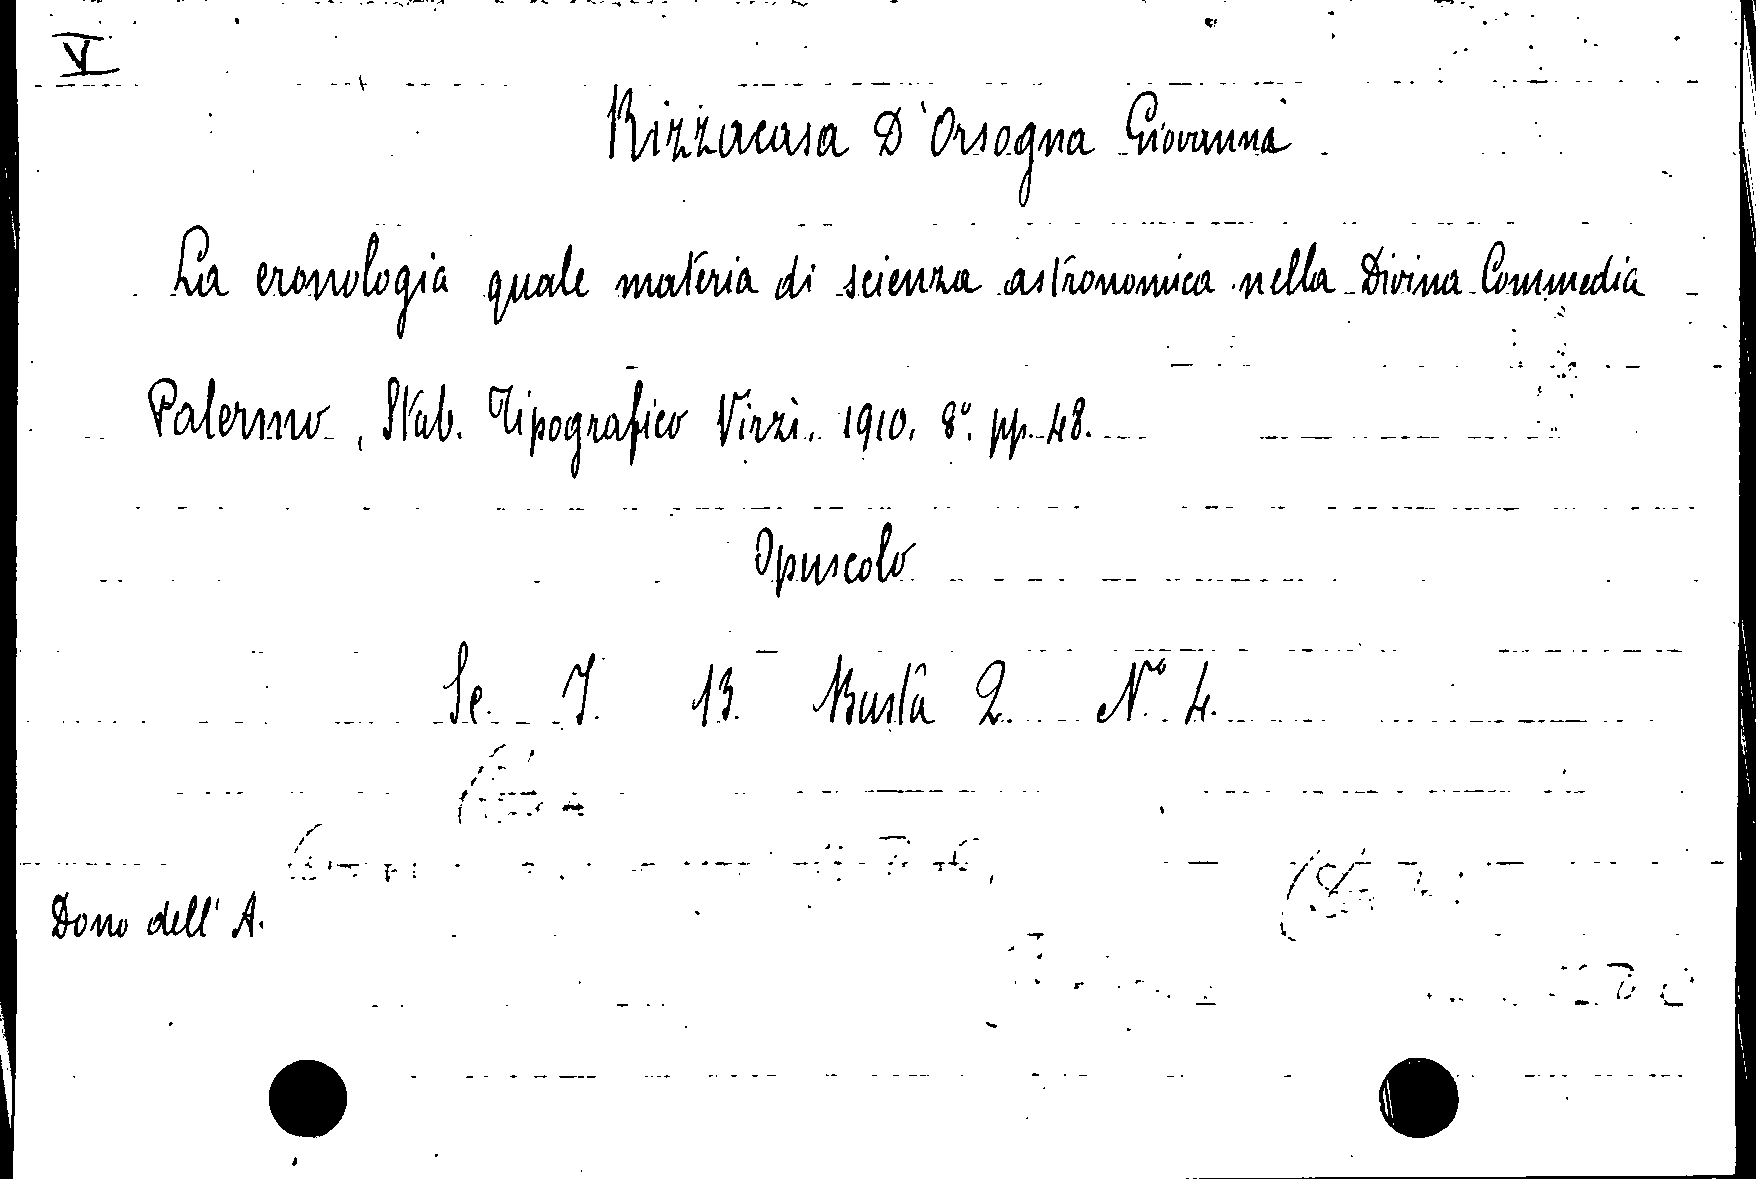 V
Rizzacasa D'Orsogna Giovanni
La cronologia quale materia di scienza astronomica nella Divina Commedia
Palermo, Stab. Tipografico Virzì. 1910. 8°. pp. 48.
Opuscolo
Sc. I. 13. Busta 2. N° 4.
Dono dell' A.